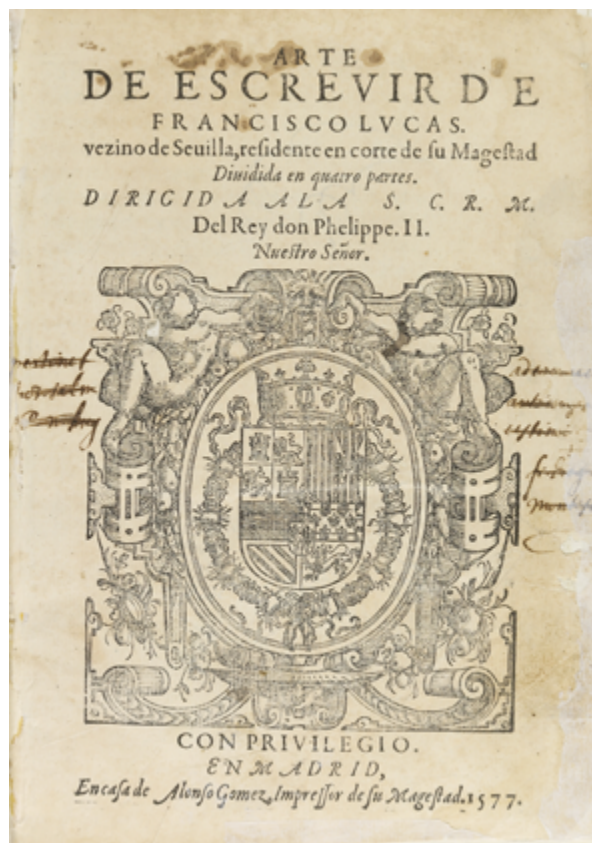 ARTE
DE ESCREVIR DE
FRANCISCO LVCAS.
vezino de Seuilla, residente en corte de su Magestad
Diuidida en quatro partes.
DIRIGIDA A LA S. C. R. M.
Del Rey don Phelippe. II.
Nuestro Señor.
CON PRIVILEGIO.
EN MADRID,
En casa de Alonso Gomez, Impressor de su Magestad. 1577.